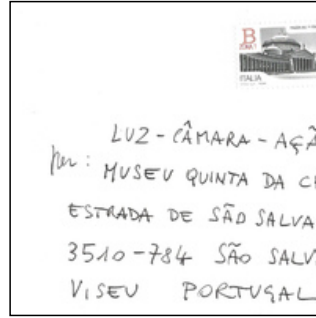 B
ZONA 1
ITALIA
LUZ-CÂMARA-AÇÃ
per:
MUSEU QUINTA DA C
ESTRADA DE SÃO SALVA
3510-784 SÃO SALV
VISEU PORTUGAL